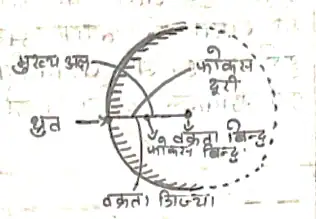 मुख्य अक्ष
फोकस
दूरी
ध्रुव
वक्रता बिन्दु
फोकस बिन्दु
वक्रता त्रिज्या